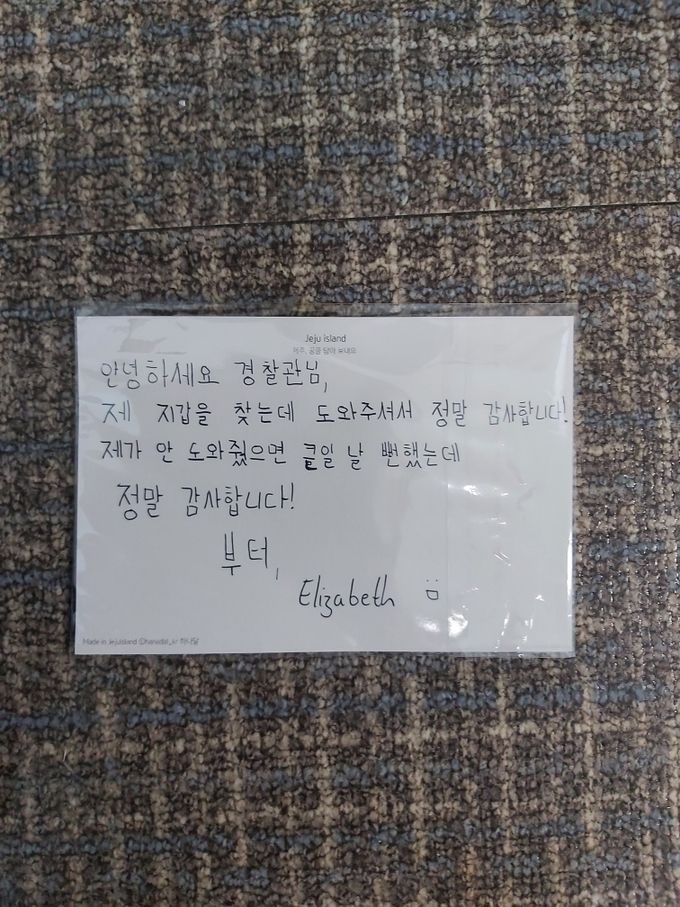 Jeju island
제주, 공을 담아 보내요
안녕하세요 경찰관님,
제 지갑을 찾는데 도와주셔서 정말 감사합니다!
제가 안 도와줬으면 큰일 날 뻔했는데
정말 감사합니다!
부터,
Elizabeth
Made in Jejuisland @hanadal_kr 하나달